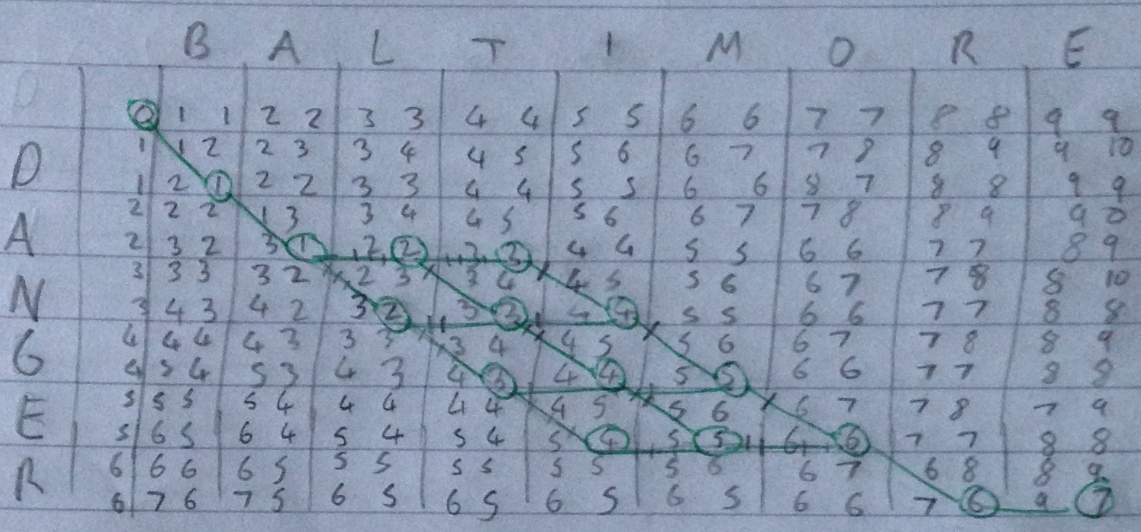 B A L T I M O R E
0 1 1 2 2 3 3 4 4 5 5 6 6 7 7 8 8 9 9
D 1 1 2 2 3 3 4 4 5 5 6 6 7 7 8 8 9 9 10
1 2 1 2 2 3 3 4 4 5 5 6 6 8 7 8 8 9 9
A 2 2 2 1 3 3 4 4 5 5 6 6 7 7 8 8 9 9 0
2 3 2 3 1 2 2 3 3 4 4 5 5 6 6 7 7 8 9
N 3 3 3 3 2 2 3 3 4 4 5 5 6 6 7 7 8 8 10
3 4 3 4 2 3 2 3 3 4 4 5 5 6 6 7 7 8 8
G 4 4 4 4 3 3 3 3 4 4 5 5 6 6 7 7 8 8 9
4 5 4 5 3 4 3 4 3 4 4 5 5 6 6 7 7 8 8
E 5 5 5 5 4 4 4 4 4 4 5 5 6 6 7 7 8 7 9
5 6 5 6 4 5 4 5 4 5 4 5 5 6 6 7 7 8 8
R 6 6 6 6 5 5 5 5 5 5 5 5 6 6 7 6 8 8 9
6 7 6 7 5 6 5 6 5 6 5 6 5 6 6 7 6 9 7